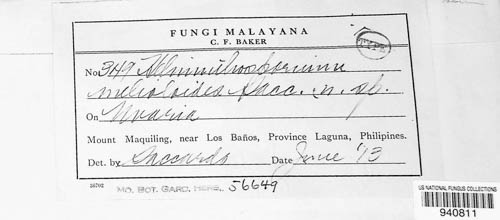 FUNGI MALAYANA
C. F. BAKER
TYPE
No. 349 Helminthosporium
melioloides Sacc. n. sp.
On Uvaria
Mount Maquiling, near Los Baños, Province Laguna, Philipines.
Det. by Saccardo Date June '13
35702
MO. BOT. GARD. HERB. 56649
US NATIONAL FUNGUS COLLECTIONS
940811